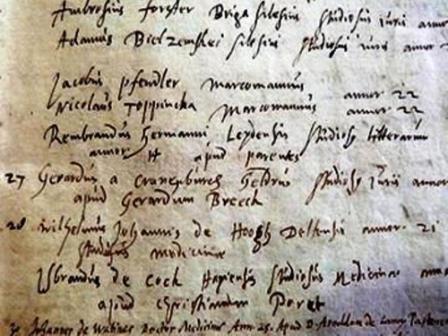 Ambrosius forster Briga Silesius Studiosus iuris annor
Adamus Bielzemskei Silesius Studiosus iuris annor
Jacobus Pfendler Marcomannus annor 22
Nicolaus Toppincka Marcomannus annor 22
Rembrandus Hermanni Leydensis Studiosus litterarum
annor 14 apud parentes
27 Gerardus a Cranenburch Geldrus Studiosus Iurii annor
apud Gerardum Breeck
28 Wilhelmus Johannis de Hoogh Delfensis annor 21
Studiosus medicinae
Isbrandus de Cock Hagiensis Studiosus Medicinae ann
apud Christianum Poret
Johannes de Doctor Medicinae Ann 25. Apud